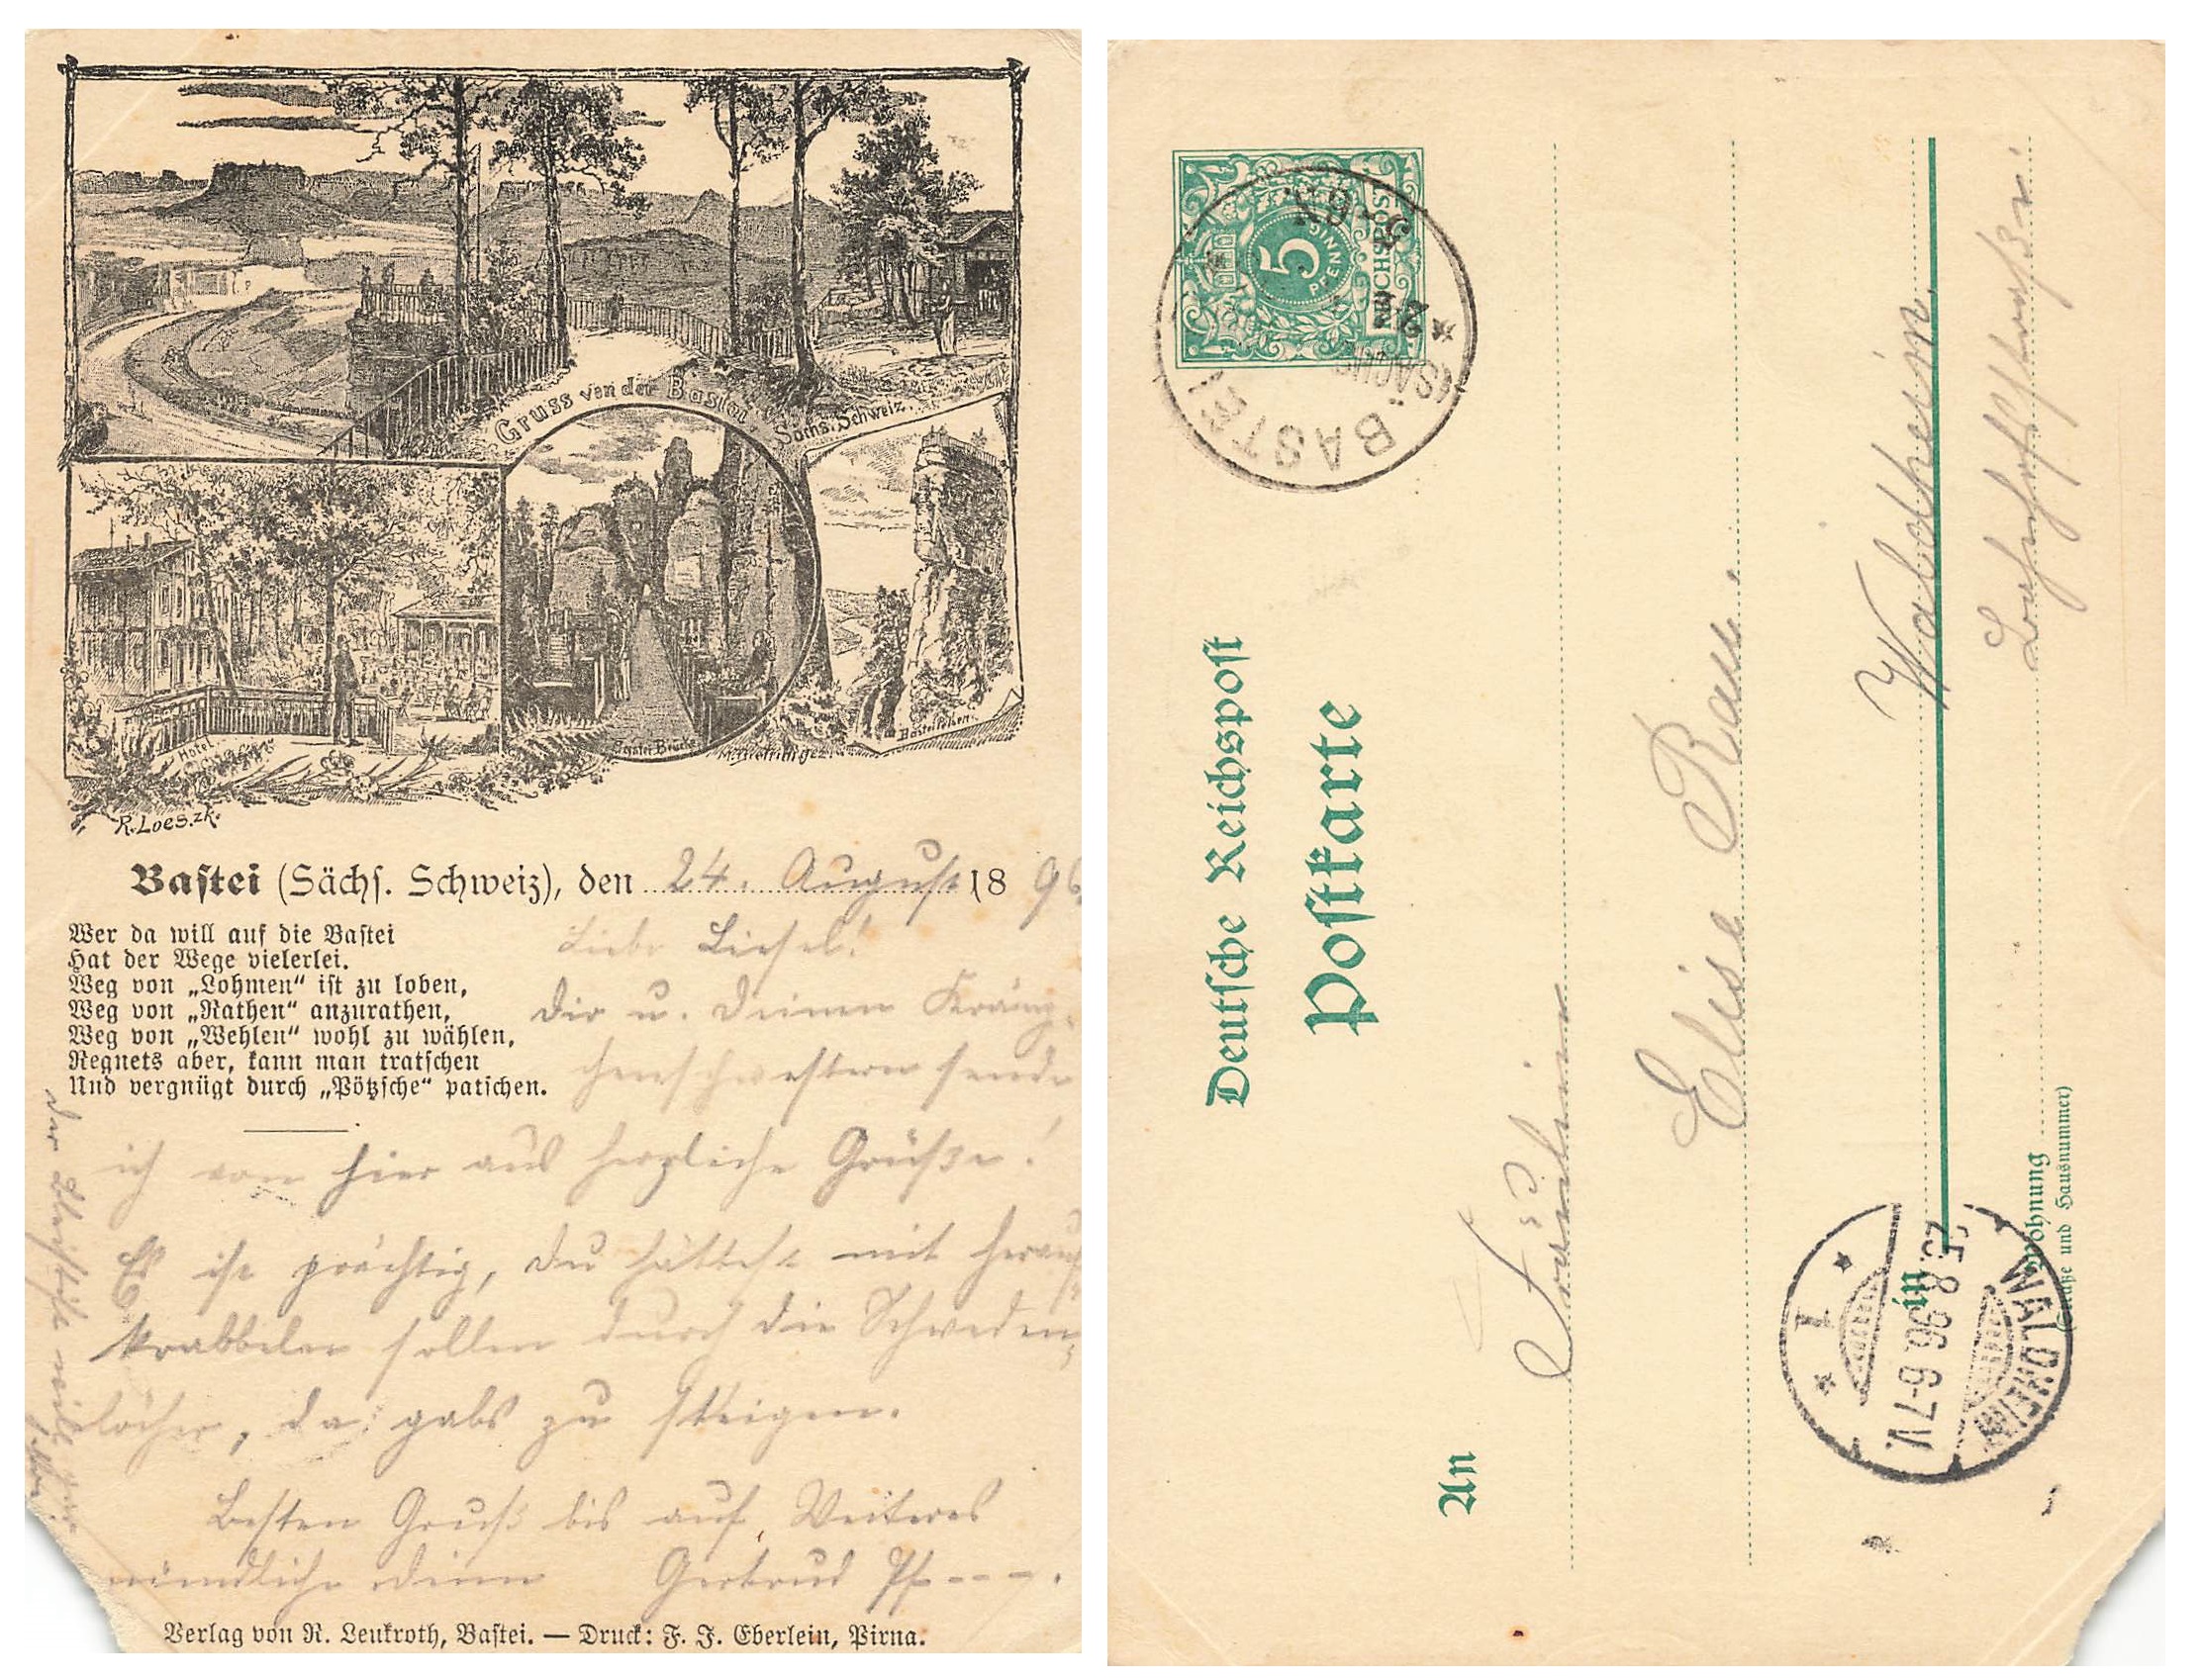 Gruss von der Bastei
Sächs. Schweiz.
Hotel
Bastei Brücke
Basteifelsen
R. Loes. zk.
Baſtei (Sächſ. Schweiz), den 24. Auguſt 1896
Wer da will auf die Baſtei
Hat der Wege vielerlei.
Weg von „Lohmen“ iſt zu loben,
Weg von „Rathen“ anzurathen,
Weg von „Wehlen“ wohl zu wählen,
Regnets aber, kann man tratſchen
Und vergnügt durch „Pötzſche“ patſchen.
Liebe Lieſel!
Dir u. Deinen Kränz-
chenſchweſtern ſende
ich von hier aus herzliche Grüße!
Es iſt prächtig, Du hätteſt mit herauf
krabbeln ſollen durch die Schweden-
löcher, da gabs zu ſteigen.
Beſten Gruß bis auf Weiteres
mündlich Deine Gertrud Pf---.
der Bleiſtift
Verlag von R. Leukroth, Baſtei. — Druck: F. J. Eberlein, Pirna.
Deutſche Reichspoſt
Poſtkarte
REICHSPOST
5
PFENNIG
BASTEI
(SÄCHS
An Fräulein
Eliſe Rau
in Waldheim.
Wohnung Bahnhofſtraße.
(Straße und Hausnummer)
WALDHEIM
25.8.96.6-7V.
1